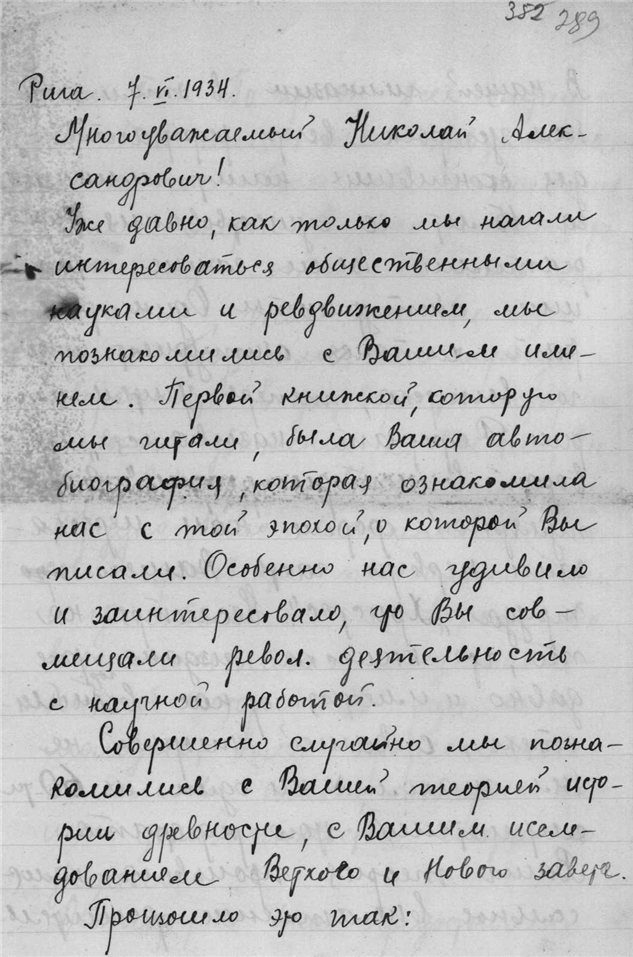 382 289
Рига. 7.VI.1934.
Многоуважаемый Николай Алек-
сандрович!
Уже давно, как только мы начали
интересоваться общественными
науками и ревдвижением, мы
познакомились с Вашим име-
нем. Первой книжкой, которую
мы читали, была Ваша авто-
биография, которая ознакомила
нас с той эпохой, о которой Вы
писали. Особенно нас удивило
и заинтересовало, что Вы сов-
мещали револ. деятельность
с научной работой.
Совершенно случайно мы позна-
комились с Вашей теорией исто-
рии древности, с Вашим иссле-
дованием Ветхого и Нового завета.
Произошло это так: